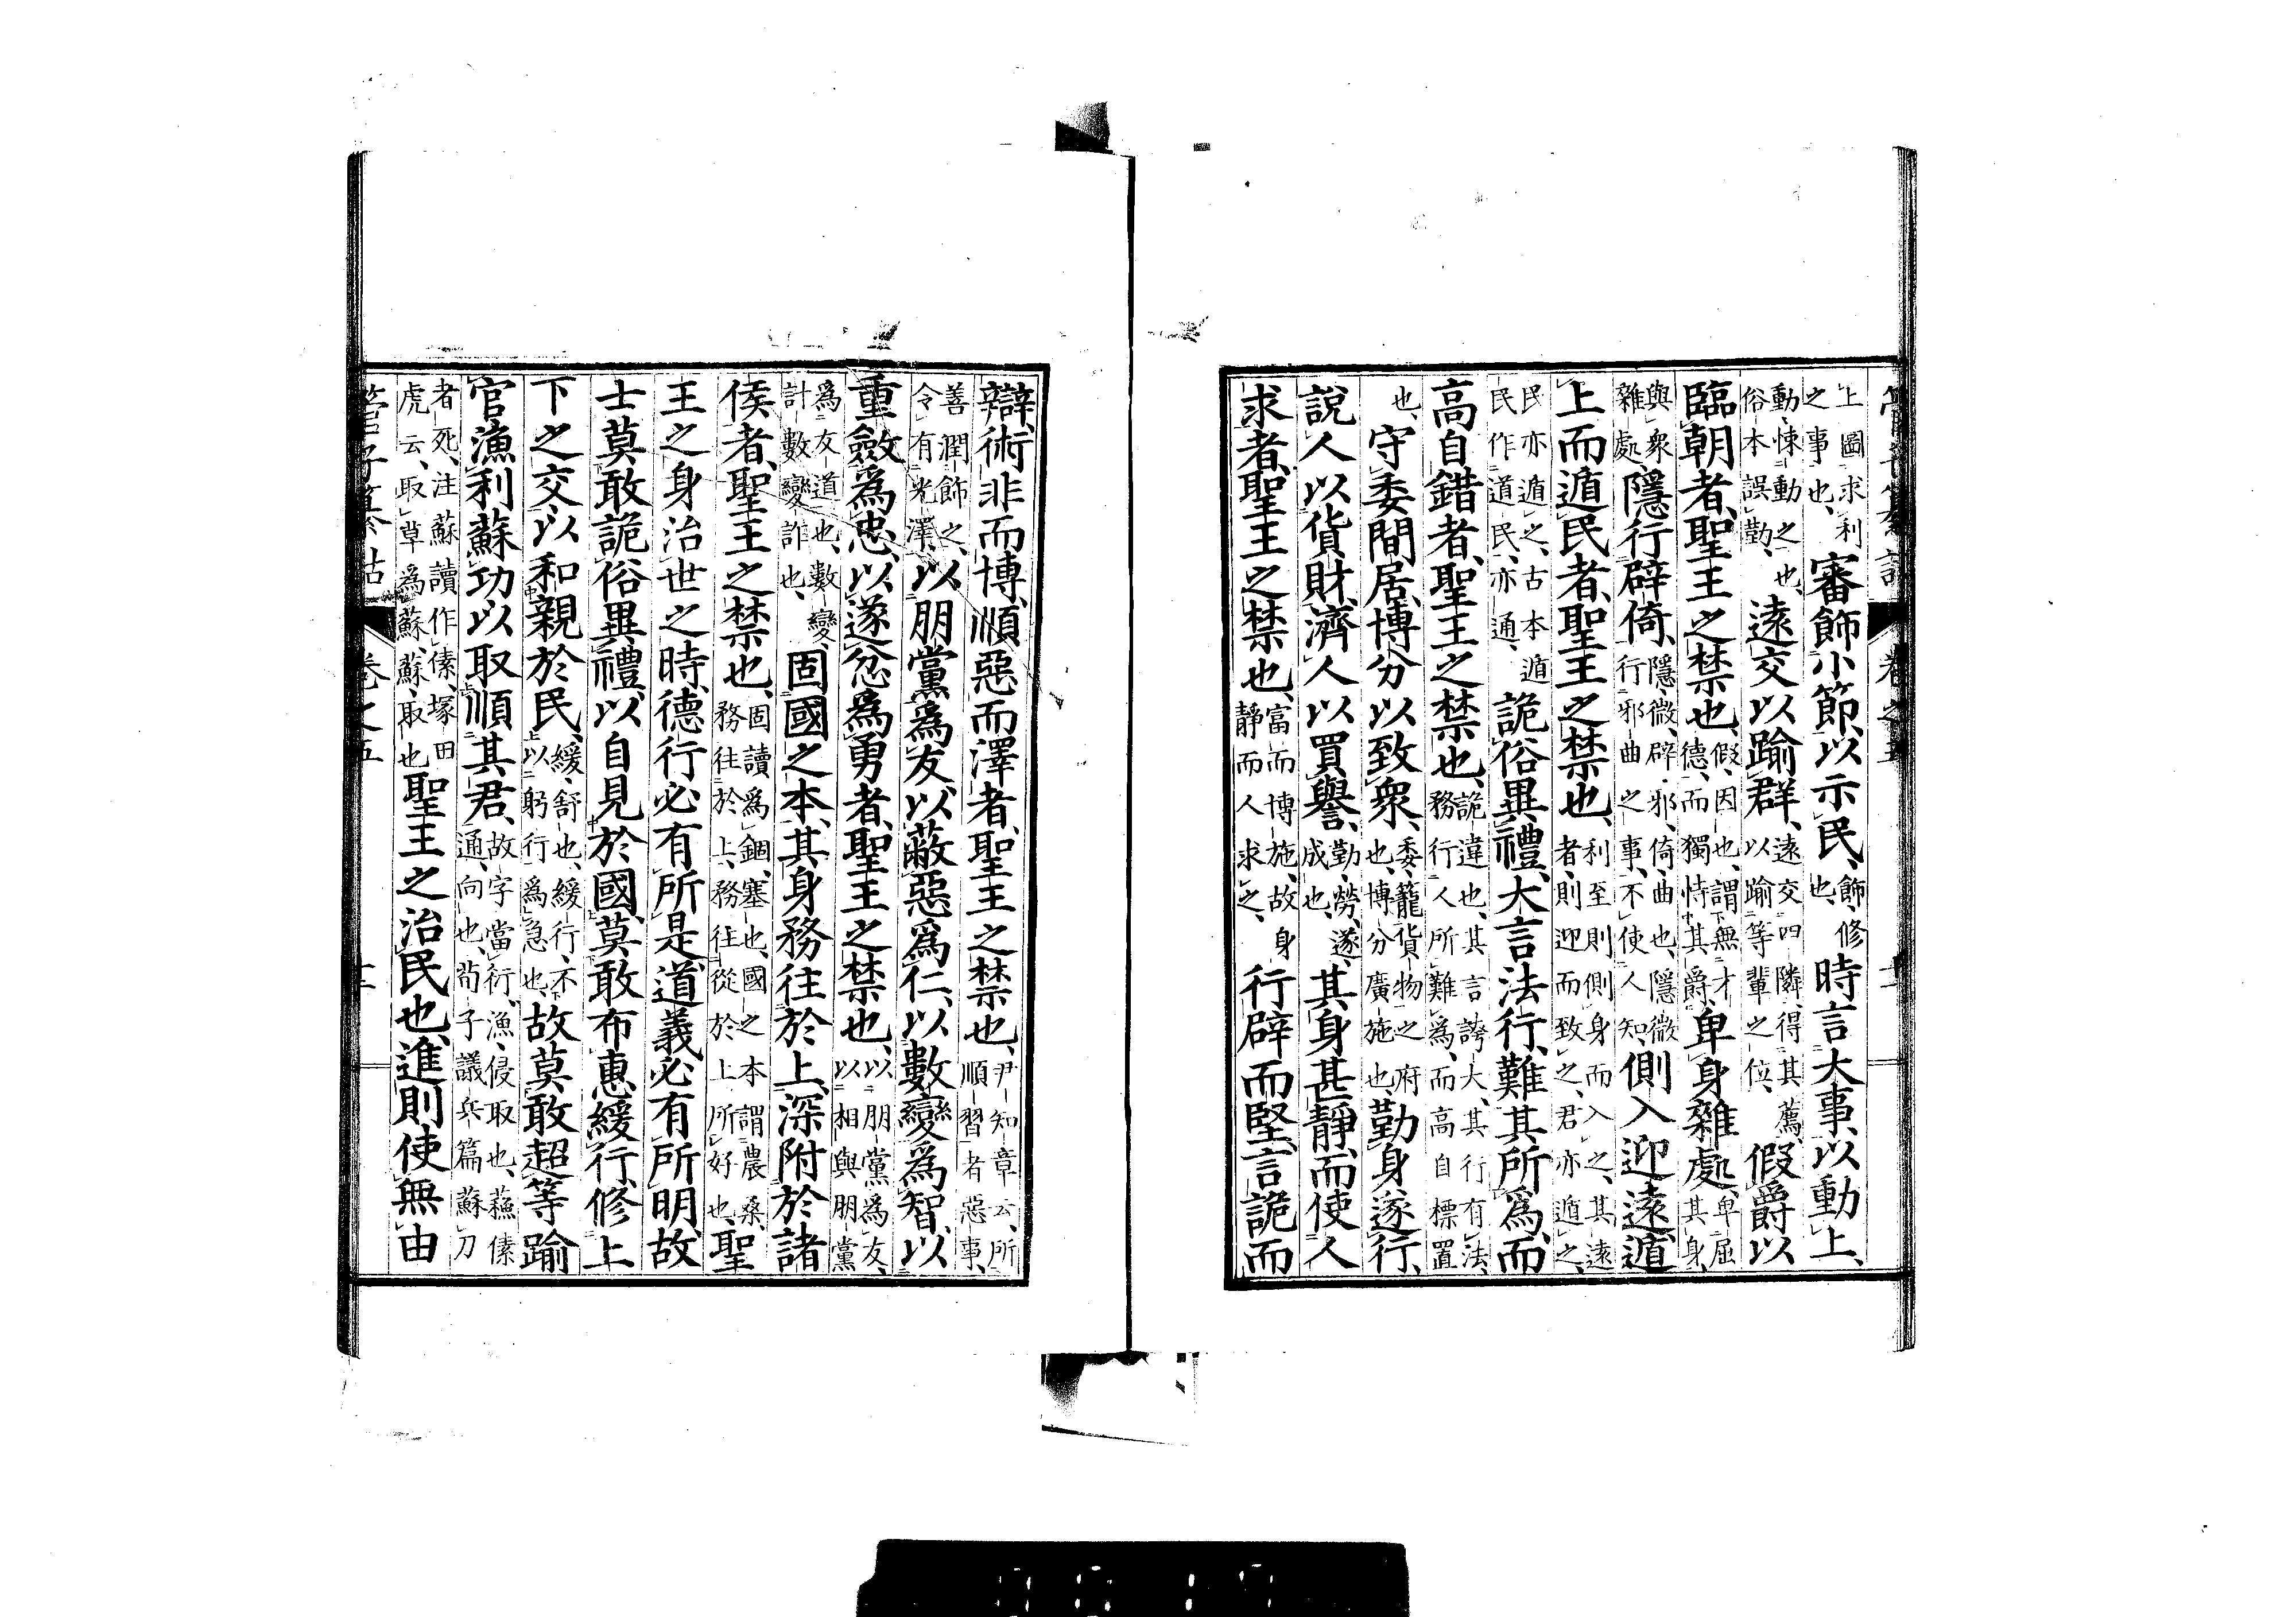 管子纂詁　卷之五
上圖求利之事也、審飾小節、以示民、飾、修也、時言大事、以動上、
動、悚動之也、俗本誤勤、遠交以踰群、遠交四隣、得其薦、以踰等輩之位、假爵以
臨朝者、聖王之禁也、假、因也、謂無才德、而獨恃其爵、卑身雜處、卑屈其身、
與衆雜處、隱行辟倚、隱、微、辟、邪、倚、曲也、隱微行邪曲之事、不使人知、側入迎遠、遁
上而遁民者、聖王之禁也、利至則側身而入之、其遠者、則迎而致之、君亦遁之、
民亦遁之、古本遁民作道民、亦通、詭俗異禮、大言法行、難其所爲、而
高自錯者、聖王之禁也、詭違也、其言誇大、其行有法、務行人所難爲、而高自標置
也、守委間居、博分以致衆、委、籠貨物之府也、博分廣施也、勤身遂行、
說人以貨財、濟人以買譽、勤、勞、遂、成也、其身甚靜、而使人
求者、聖王之禁也、富而博施、故身靜而人求之、行辟而堅、言詭而
辯、術非而博、順惡而澤者、聖王之禁也、尹知章云、所順習者惡事、
善潤飾之、令有光澤、以朋黨爲友、以蔽惡爲仁、以數變爲智、以
重斂爲忠、以遂忿爲勇者、聖王之禁也、以朋黨爲友、以相與朋黨
爲友道也、數變、計數變詐也、固國之本、其身務往於上、深附於諸
侯者、聖王之禁也、固讀爲錮、塞也、國之本謂農桑、務往於上、務往從於上所好也、聖
王之身、治世之時、德行必有所是、道義必有所明、故
士莫敢詭俗異禮、以自見於國、莫敢布惠緩行、修上
下之交、以和親於民、緩舒也、緩行、不以躬行爲急也、故莫敢超等踰
官漁利蘇功以取順其君、故字當衍、漁、侵取也、蘇傃通、向也、荀子議兵篇蘇刀
者死、注蘇讀作傃、塚田虎云、取草爲蘇、蘇、取也聖王之治民也、進則使無由
管子纂詁　卷之五　十二